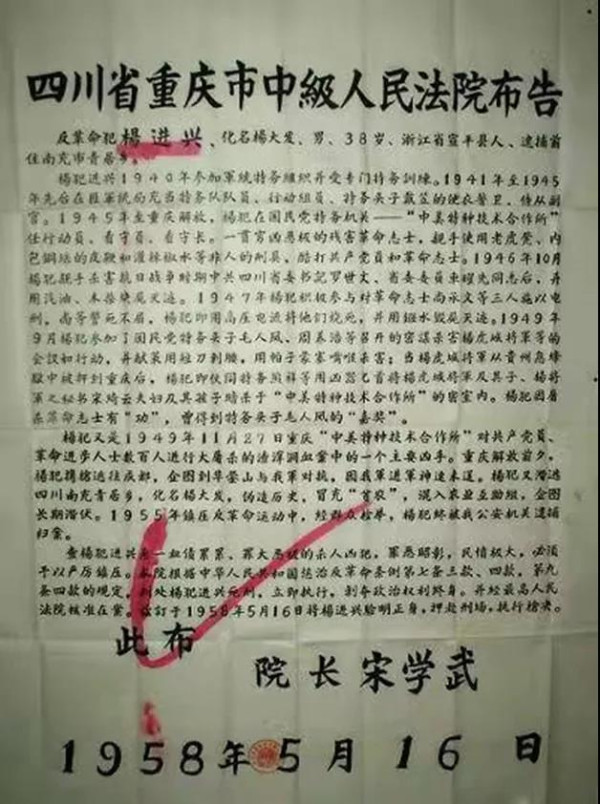 四川省重庆市中級人民法院布告
反革命犯楊进兴、化名楊大发、男、38岁、浙江省宣平县人、逮捕前
住南充市青居乡。
楊犯进兴1940年参加軍統特务組织幷受专门特务訓练。1941年至1945
年先后在匪軍統局充当特务队队员、行动組员、特务头子戴笠的便衣警卫、侍从副
官。1945年至重庆解放，楊犯在国民党特务机关——“中美特种技术合作所”
任行动员、看守员、看守长。一貫穷凶恶极的残害革命志士，亲手使用老虎凳、内
包鋼丝的皮鞭和灌辣椒水等非人的刑具，酷打共产党员和革命志士。1946年10月
楊犯亲手杀害抗日战爭时期中共四川省委书記罗世文、省委委员車耀先同志后，幷
用汽油、木柴燒尸灭迹。1947年楊犯积极参与对革命志士尚承文等三人施以电
刑，尚等誓死不屈，楊犯即用高压电流将他们燒死，幷用鏹水毁尸灭迹。1949年
9月楊犯参加了国民党特务头子毛人凤、周养浩等召开的密謀杀害楊虎城将軍等的
会議和行动，幷献策用短刀刺腰，用帕子蒙塞嘴脸杀害；当楊虎城将軍从貴州息烽
獄中被押到重庆后，楊犯即伙同特务熊祥等用凶器匕首将楊虎城将軍及其子、楊将
軍之秘书宋綺云夫妇及其孩子暗杀于“中美特种技术合作所”的密室内。楊犯因屠
杀革命志士有“功”，曾得到特务头子毛人凤的“嘉奖”。
楊犯又是1949年11月27日重庆“中美特种技术合作所”对共产党员、
革命进步人士数百人进行大屠杀的渣滓洞血案中的一个主要凶手。重庆解放前夕，
楊犯携槍逃往成都，企图到华蓥山与我軍对抗，因我軍进軍神速未逞。楊犯又潜逃
四川南充青居乡，化名楊大发，伪造历史，冒充“貧农”，混入农业互助組，企图
长期潜伏。1955年镇压反革命运动中，经羣众检举，楊犯終被我公安机关逮捕
归案。
查楊犯进兴是一血債累累、罪大恶极的杀人凶犯，罪恶昭彰，民憤极大，必須
予以严厉镇压。本院根据中华人民共和国惩治反革命条例第七条三款、四款，第九
条四款的规定，判处楊犯进兴死刑，立即执行，剥夺政治权利終身。幷经最高人民
法院核准在案。兹訂于1958年5月16日将楊进兴驗明正身，押赴刑场，执行槍决。
此布
院长宋学武
1958年5月16日